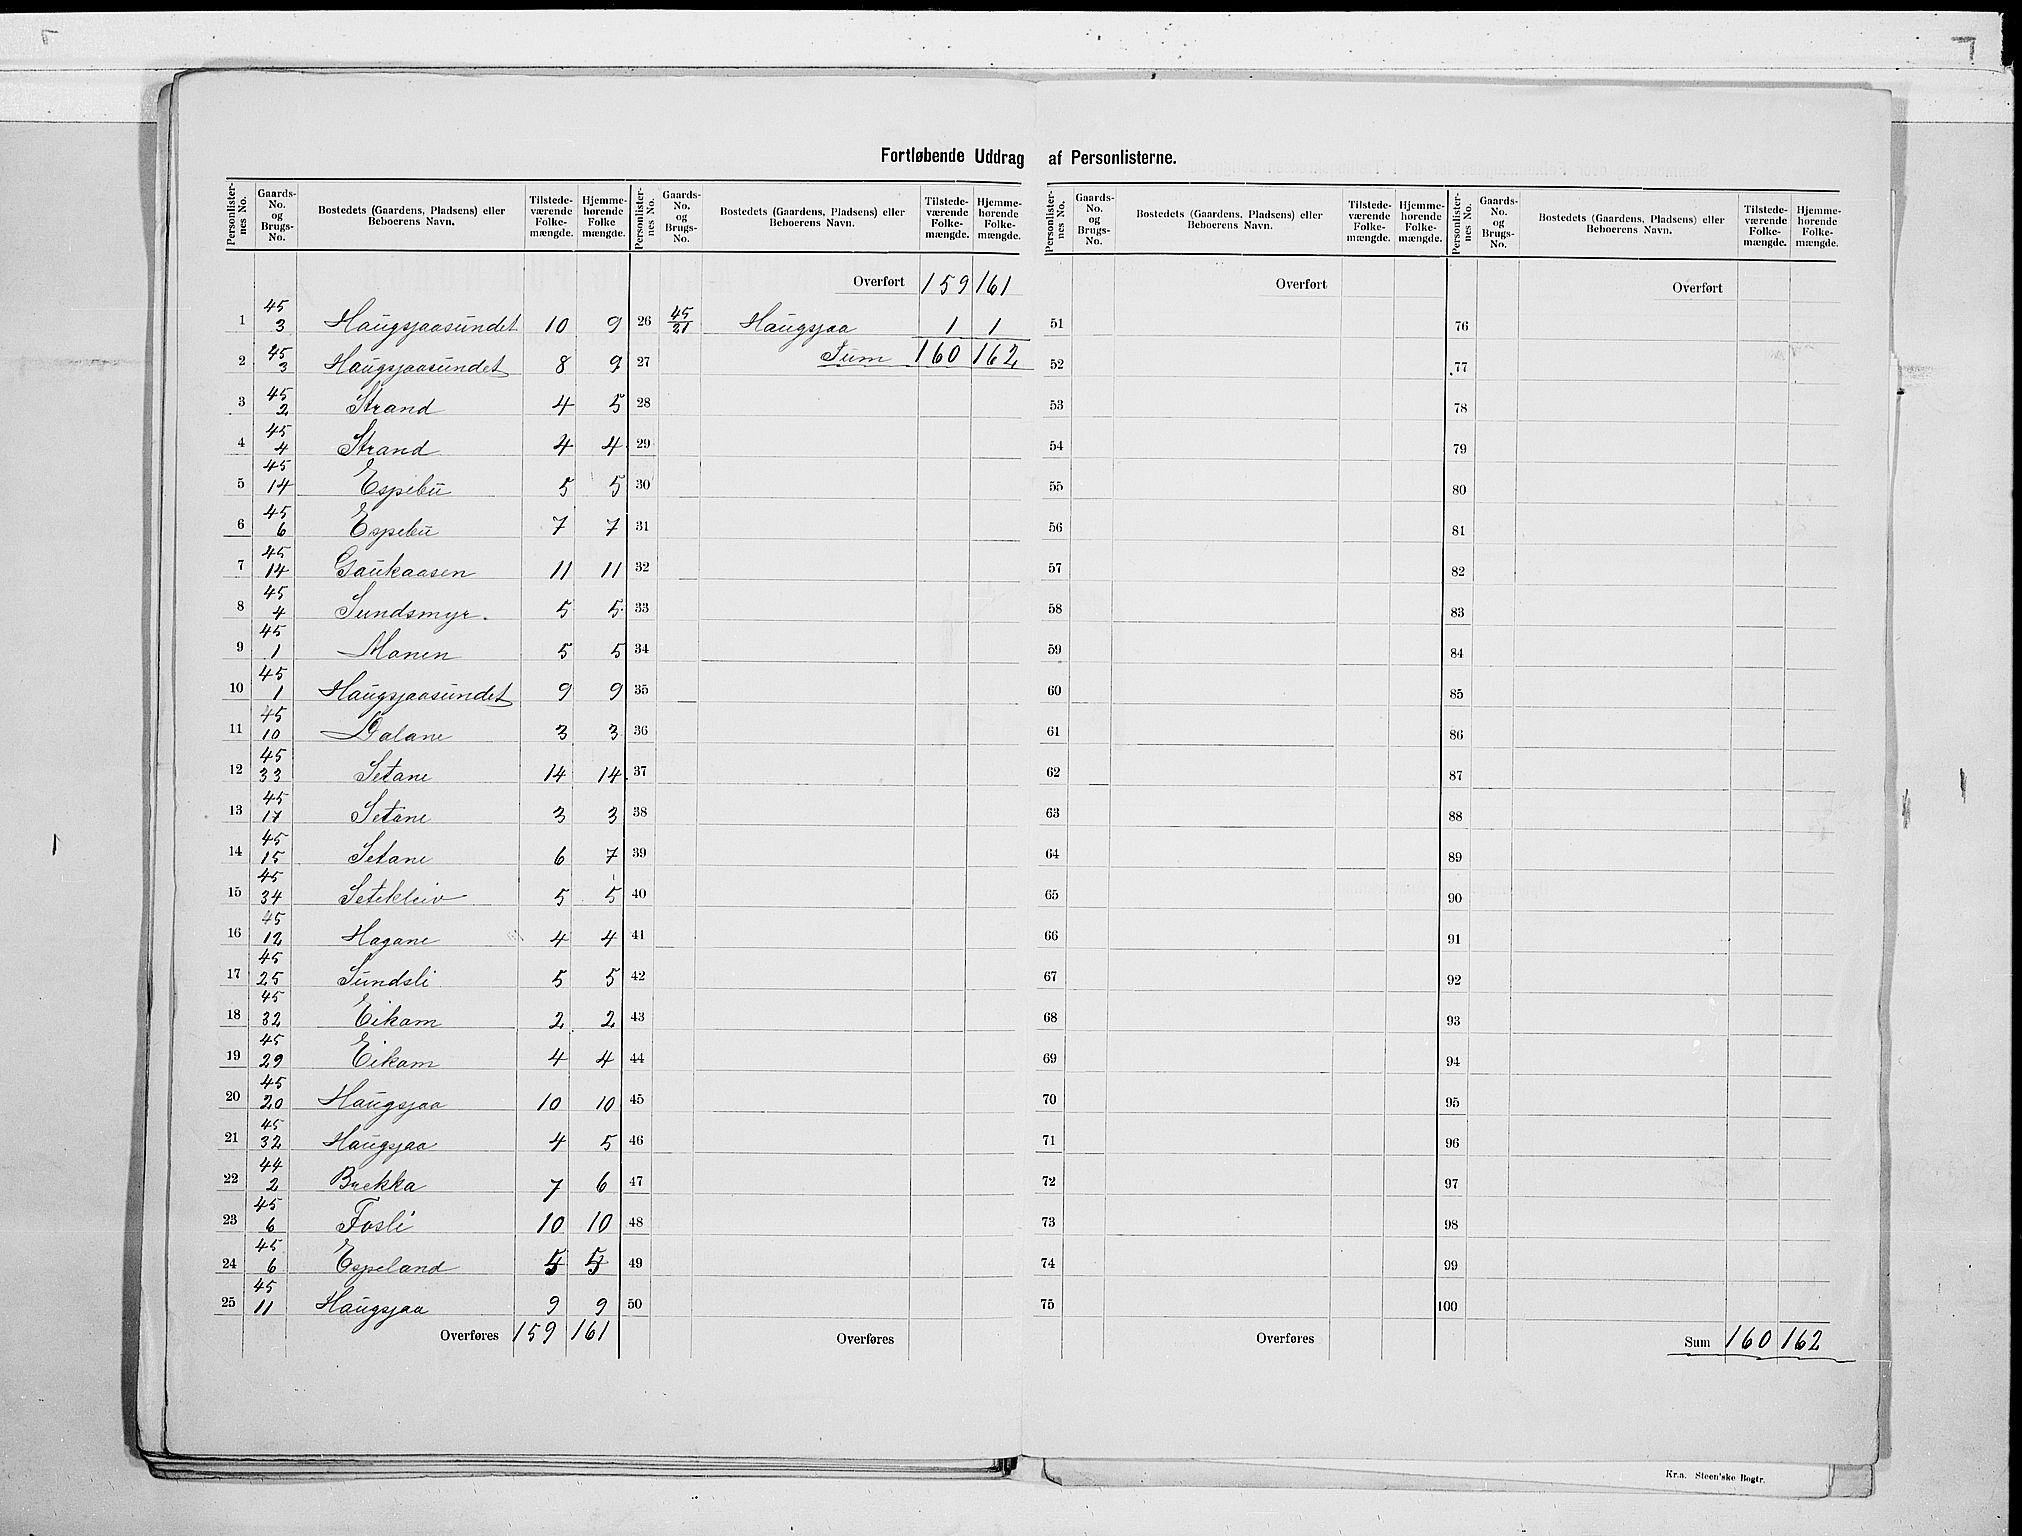 Fortløbende Uddrag af Personlisterne.
Personlister-nes No. | Gaards-No. og Brugs-No. | Bostedets (Gaardens, Pladsens) eller Beboerens Navn. | Tilstede-værende Folke-mængde. | Hjemme-hørende Folke-mængde.
1 45/3 Haugsjaasundet 10 9
2 45/3 Haugsjaasundet 8 9
3 45/2 Strand 4 5
4 45/4 Strand 4 4
5 45/14 Espebu 5 5
6 45/6 Espebu 7 7
7 45/14 Gaukaasen 11 11
8 45/4 Sundsmyr. 5 5
9 45/1 Monen 5 5
10 45/1 Haugsjaasundet 9 9
11 45/10 Dalane 3 3
12 45/33 Setane 14 14
13 45/17 Setane 3 3
14 45/15 Setane 6 7
15 45/34 Setekleiv 5 5
16 45/12 Hagane 4 4
17 45/25 Sundsli 5 5
18 45/32 Eikom 2 2
19 45/29 Eikom 4 4
20 45/20 Haugsjaa 10 10
21 45/32 Haugsjaa 4 5
22 44/2 Brekka 7 6
23 45/6 Fosli 10 10
24 45/6 Espeland 5 5
25 45/11 Haugsjaa 9 9
Overføres 159 161
Personlister-nes No. | Gaards-No. og Brugs-No. | Bostedets (Gaardens, Pladsens) eller Beboerens Navn. | Tilstede-værende Folke-mængde. | Hjemme-hørende Folke-mængde.
Overført 159 161
26 45/21 Haugsjaa 1 1
27 Sum 160 162
28
29
30
31
32
33
34
35
36
37
38
39
40
41
42
43
44
45
46
47
48
49
50
Overføres
Personlister-nes No. | Gaards-No. og Brugs-No. | Bostedets (Gaardens, Pladsens) eller Beboerens Navn. | Tilstede-værende Folke-mængde. | Hjemme-hørende Folke-mængde.
Overført
51
52
53
54
55
56
57
58
59
60
61
62
63
64
65
66
67
68
69
70
71
72
73
74
75
Overføres
Personlister-nes No. | Gaards-No. og Brugs-No. | Bostedets (Gaardens, Pladsens) eller Beboerens Navn. | Tilstede-værende Folke-mængde. | Hjemme-hørende Folke-mængde.
Overført
76
77
78
79
80
81
82
83
84
85
86
87
88
89
90
91
92
93
94
95
96
97
98
99
100
Sum 160 162
Kr.a. Steen'ske Bogtr.